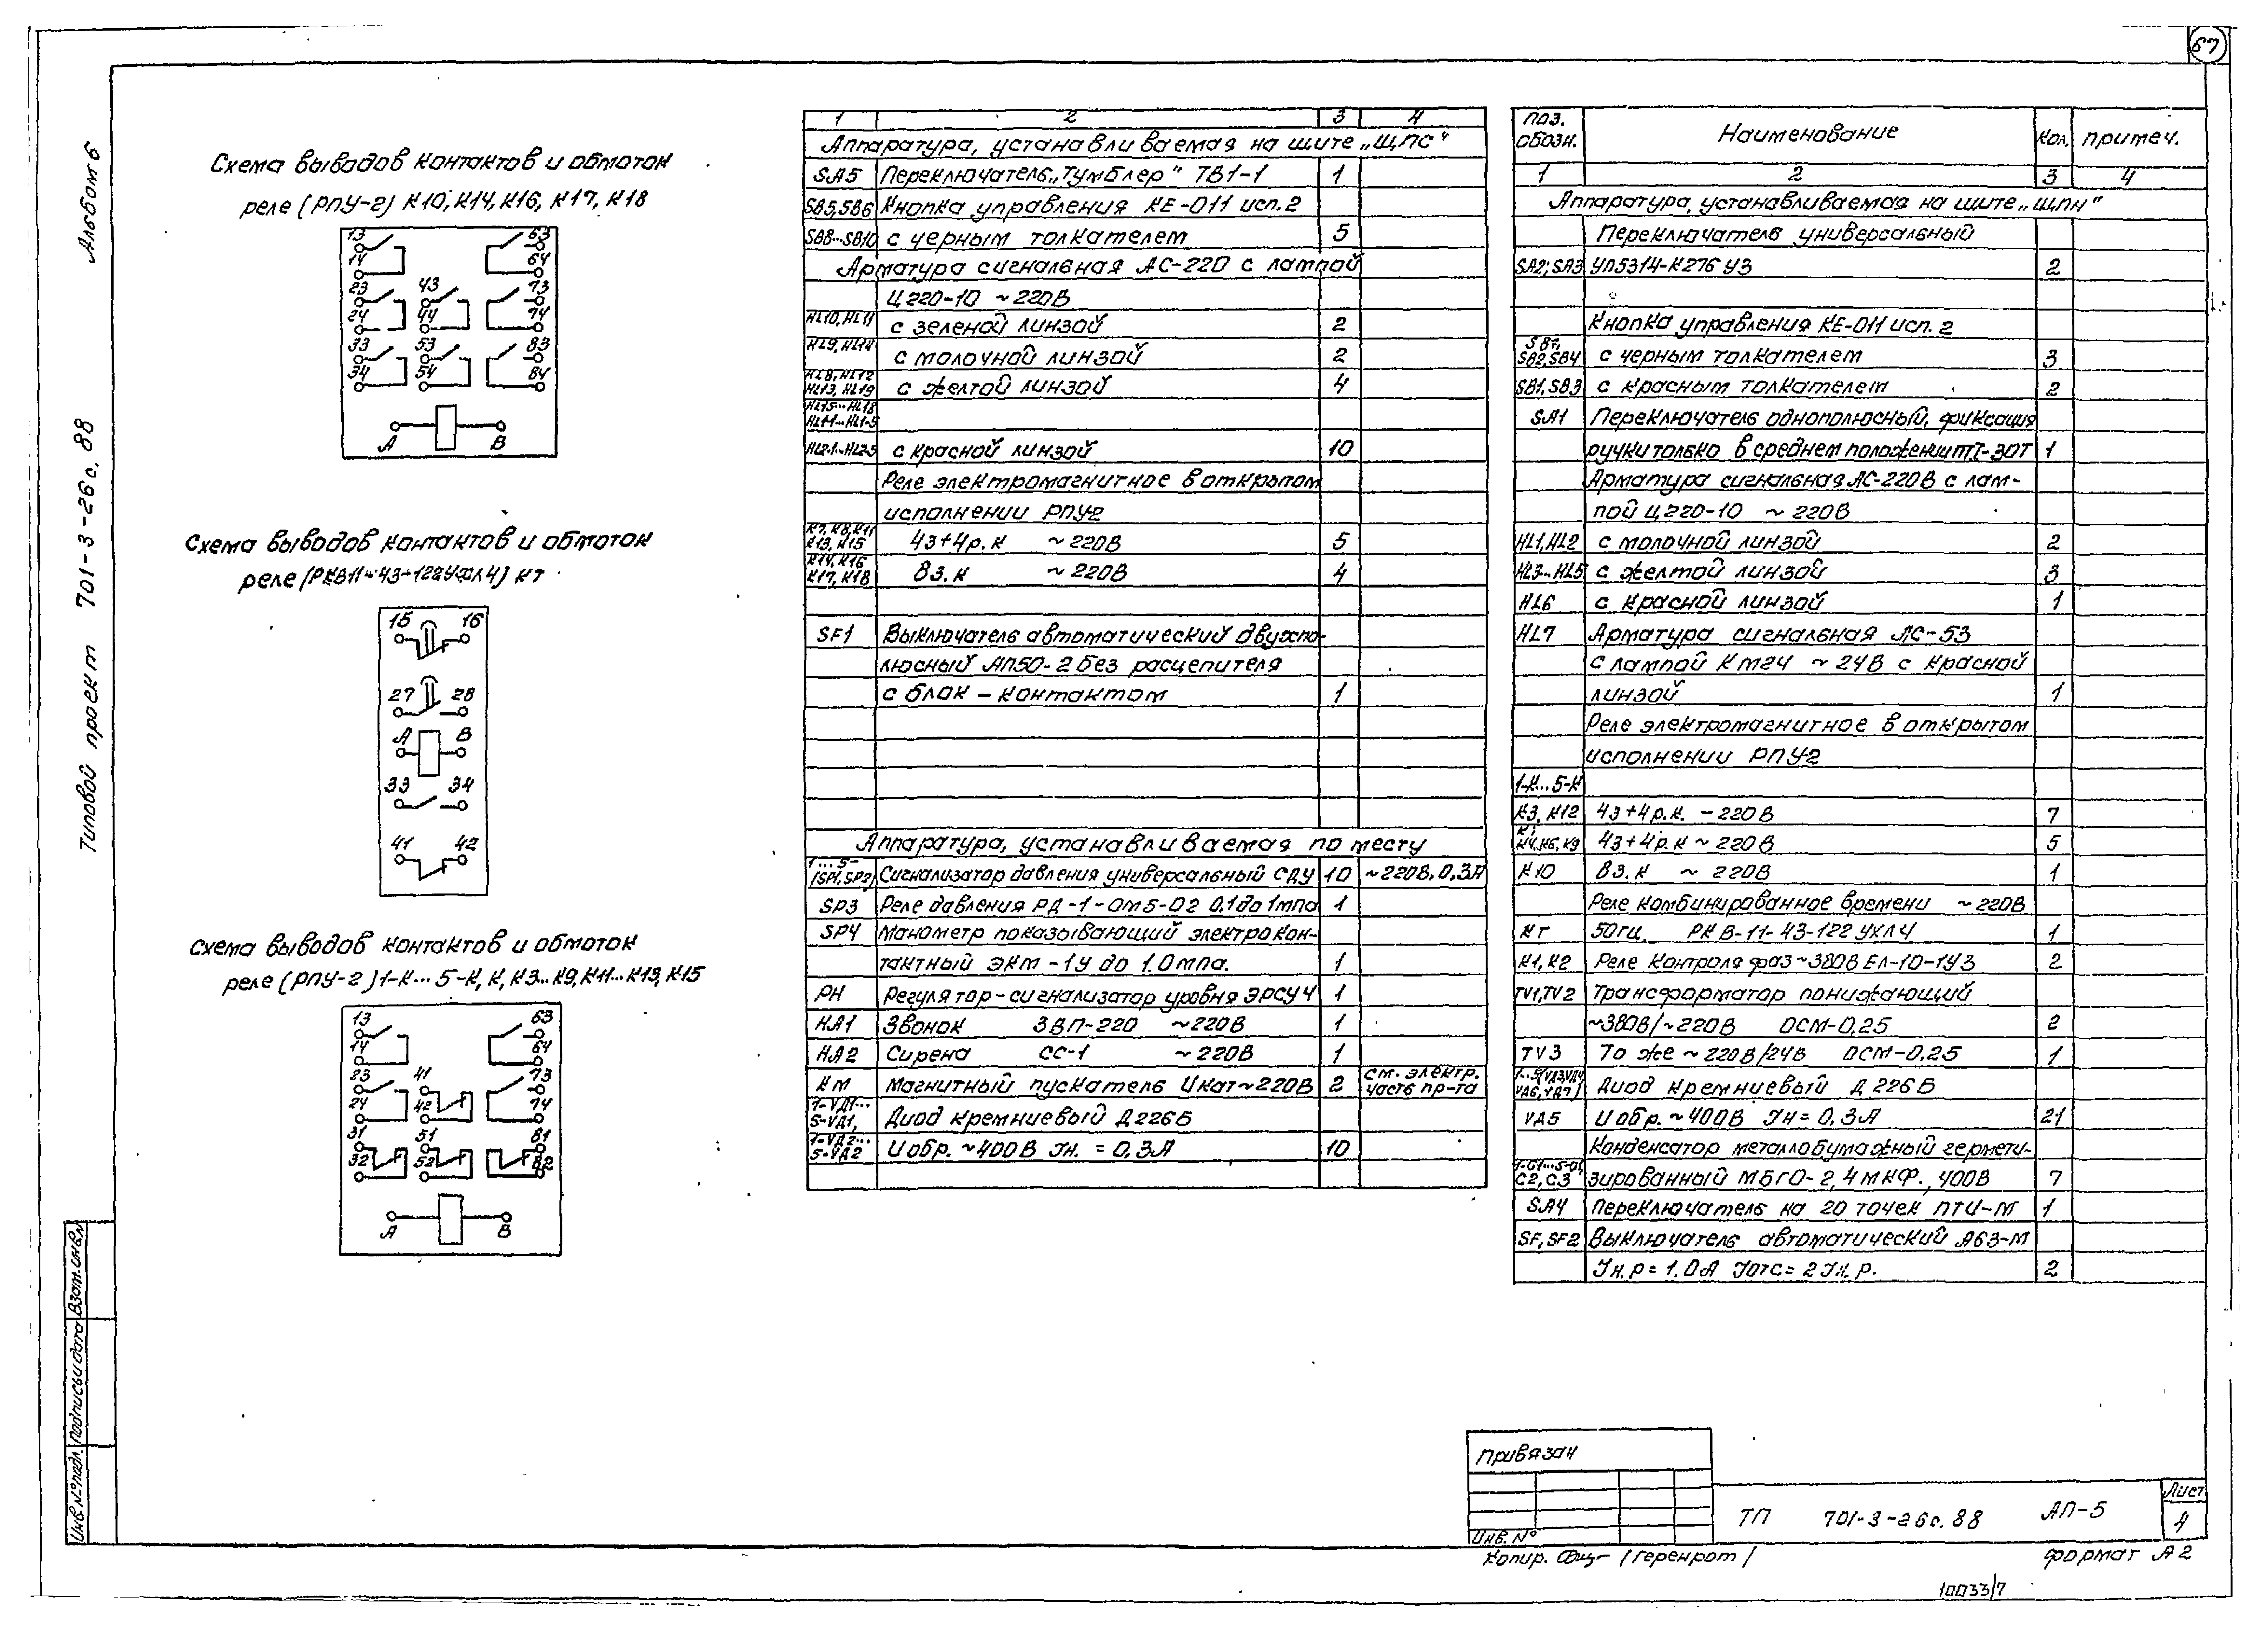 67
Альбом 6
Типовой проект 701-3-26с.88
Схема выводов контактов и обмоток
реле (РПУ-2) К10, К14, К16, К17, К18
13 63
14 64
23 43 73
24 44 74
33 53 83
34 54 84
А В
Схема выводов контактов и обмоток
реле (РКВ11-43-122УХЛ4) КТ
15 16
27 28
А В
33 34
41 42
Схема выводов контактов и обмоток
реле (РПУ-2) 1-К...5-К, К, К3...К9, К11...К13, К15
13 63
14 64
23 41 73
24 42 74
31 51 81
32 52 82
А В
1 2 3 4
Аппаратура, устанавливаемая на щите „ЩПС“
SA5 Переключатель „Тумблер“ ТВ1-1 1
SB5, SB6 Кнопка управления КЕ-011 исп. 2
SB8...SB10 с черным толкателем 5
Арматура сигнальная АС-220 с лампой
Ц220-10 ~220В
HL10, HL11 с зеленой линзой 2
HL9, HL14 с молочной линзой 2
HL8, HL12
HL13, HL19 с желтой линзой 4
HL15...HL18
HL1-1...HL1-5
HL2-1...HL2-5 с красной линзой 10
Реле электромагнитное в открытом
исполнении РПУ2
К7, К8, К11
К13, К15 4з+4р.к ~220В 5
К14, К16
К17, К18 8з.к ~220В 4
SF1 Выключатель автоматический двухпо-
люсный АП50-2 без расцепителя
с блок-контактом 1
Аппаратура, устанавливаемая по месту
1...5-
(SP1, SP2) Сигнализатор давления универсальный СДУ 10 ~220В, 0,3А
SP3 Реле давления РД-1-ОМ5-02 0,1 до 1мпа 1
SP4 Манометр показывающий электрокон-
тактный ЭКМ-1У до 1.0мпа. 1
РН Регулятор-сигнализатор уровня ЭРСУ4 1
НА1 Звонок ЗВП-220 ~220В 1
НА2 Сирена СС-1 ~220В 1
КМ Магнитный пускатель Uкат~220В 2 см. электр. часть пр-та
1-VД1...
5-VД1, Диод кремниевый Д226Б
1-VД2...
5-VД2 Uобр. ~400В Iн. = 0,3А 10
поз. обозн. Наименование Кол. примеч.
1 2 3 4
Аппаратура, устанавливаемая на щите „ЩПН“
Переключатель универсальный
SA2; SA3 УП5314-К276 У3 2
Кнопка управления КЕ-011 исп. 2
SB1,
SB2, SB4 с черным толкателем 3
SB1, SB3 с красным толкателем 2
SA1 Переключатель однополюсный, фиксация
ручки только в среднем положении ПТ1-30Т 1
Арматура сигнальная АС-220В с лам-
пой Ц220-10 ~220В
HL1, HL2 с молочной линзой 2
HL3...HL5 с желтой линзой 3
HL6 с красной линзой 1
HL7 Арматура сигнальная ЛС-53
с лампой КМ24 ~24В с красной
линзой 1
Реле электромагнитное в открытом
исполнении РПУ2
1-К...5-К
К3, К12 4з+4р.к. -220В 7
К,
К4, К6, К9 4з+4р.к ~220В 5
К10 8з.к ~220В 1
Реле комбинированное времени ~220В
КТ 50гц. РКВ-11-43-122 УХЛ4 1
К1, К2 Реле контроля фаз ~380В ЕЛ-10-1У3 2
TV1, TV2 Трансформатор понижающий
~380В/~220В ОСМ-0,25 2
TV3 То же ~220В/24В ОСМ-0,25 1
1...5(VД3, VД4
VД6, VД7) Диод кремниевый Д226В
VД5 Uобр. ~400В Iн = 0,3А 21
Конденсатор металлобумажный гермети-
1-С1...5-С1,
С2, С3 зированный МБГО-2, 4мкф., 400В 7
SA4 Переключатель на 20 точек ПТИ-М 1
SF, SF2 Выключатель автоматический А63-М
Iн.р = 1.0А Iотс = 2Iн.р. 2
Привязан
Инв. №
ТП 701-3-26с.88 АП-5
Лист
4
Копир. /Геренрот/ формат А2
10033/7
Инв. № подл. Подпись и дата Взам. инв. №